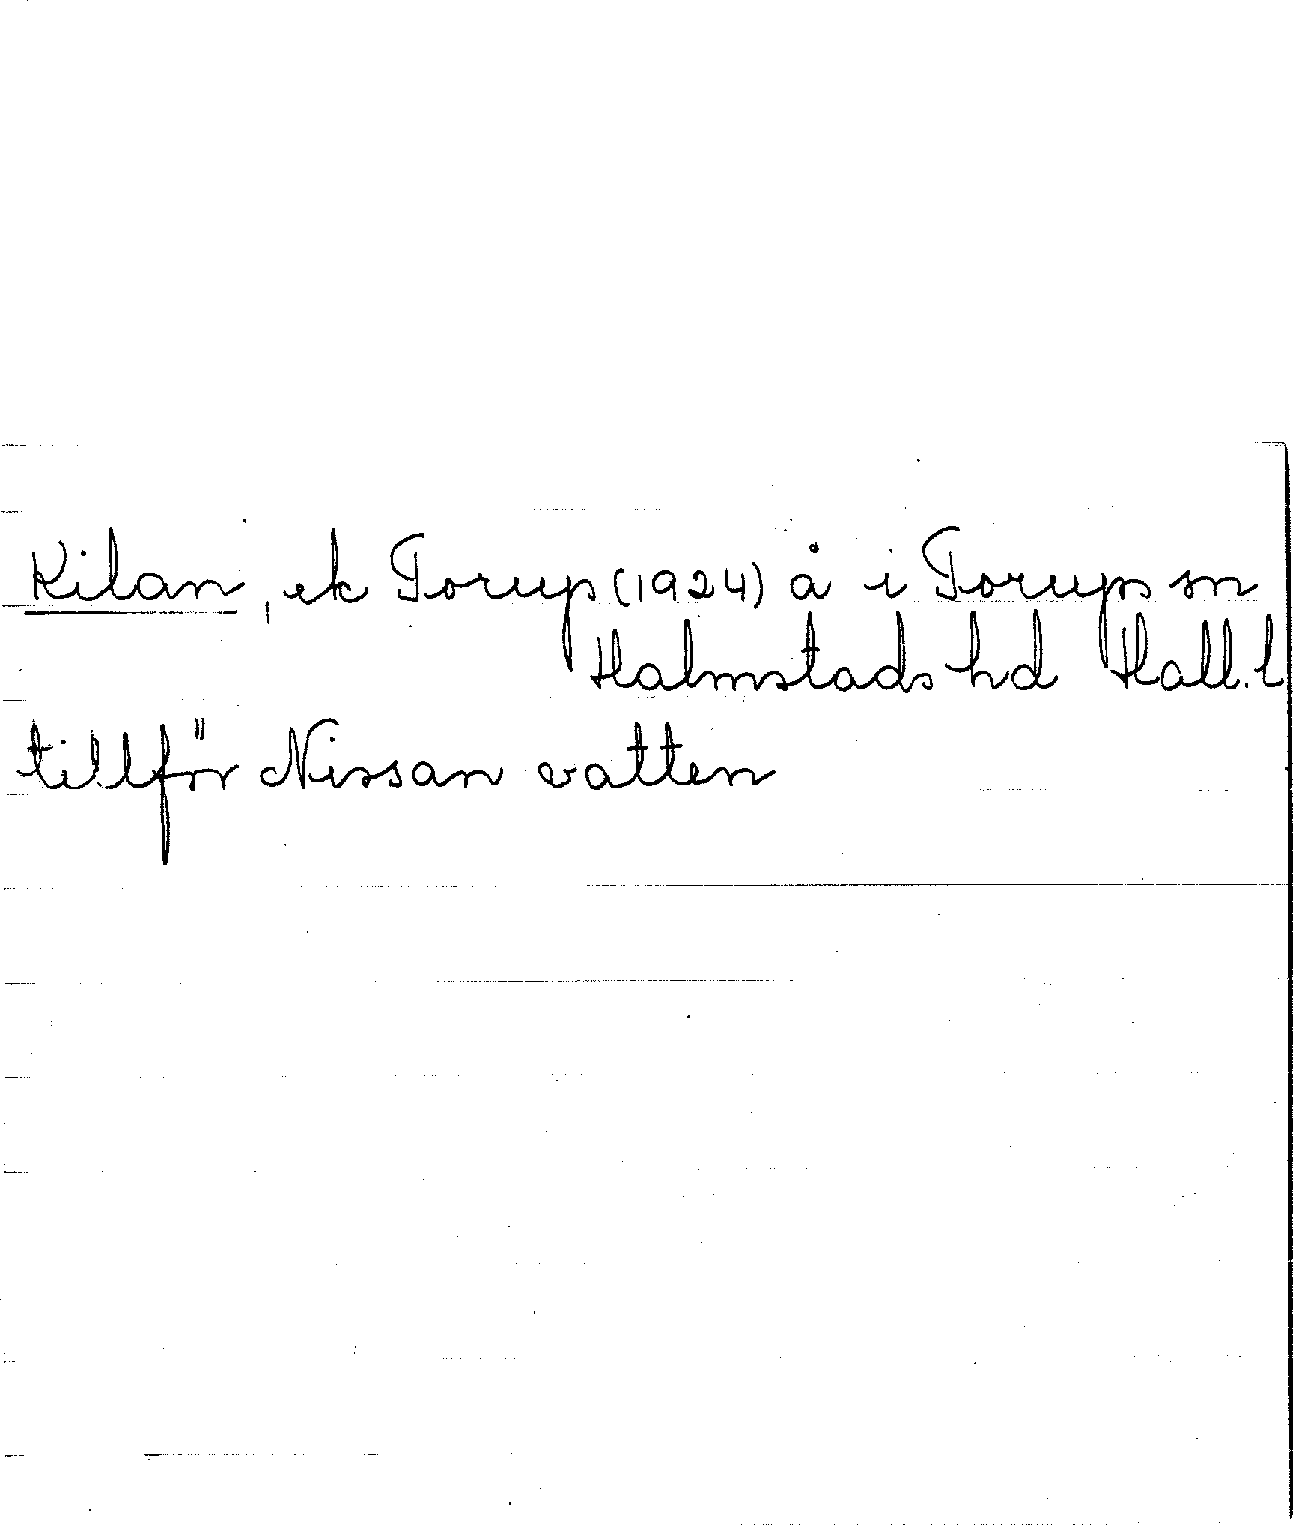 Kilan, ek Torup (1924) å i Torups sn
Halmstads hd Hall. l
tillför Nissan vatten